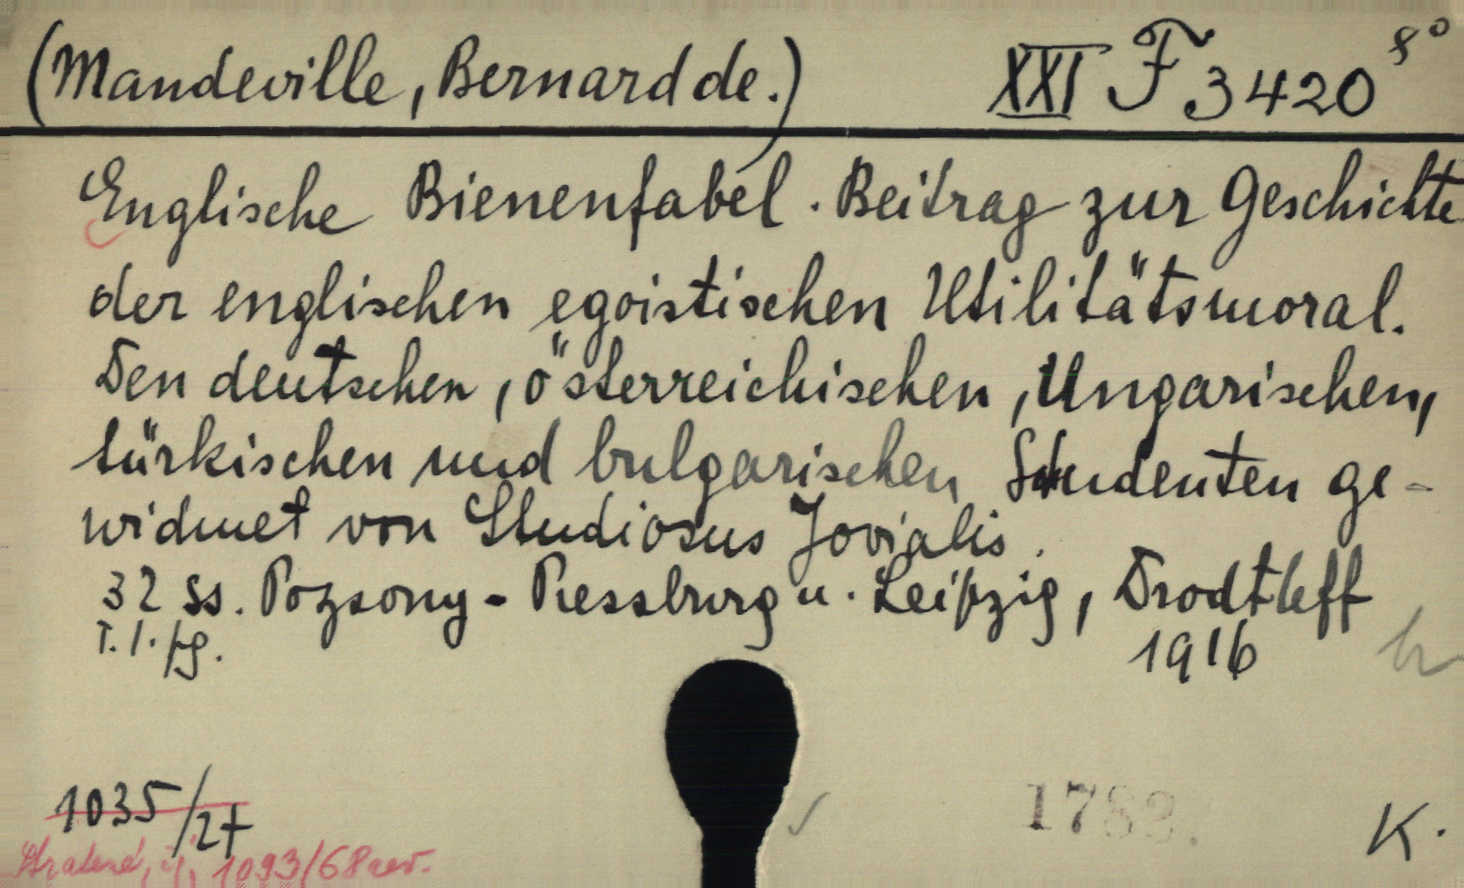 (Mandeville, Bernard de.) XXI F 3420 8°
Englische Bienenfabel. Beitrag zur Geschichte
der englischen egoistischen Utilitätsmoral.
Den deutschen, österreichischen, Ungarischen,
türkischen und bulgarischen Studenten ge-
widmet von Studiosus Jovialis.
32 Ss. Pozsony-Pressburg u. Leipzig, Drodtleff
1916
T. l. fg.
1035/27
1783.
K.
1093/68